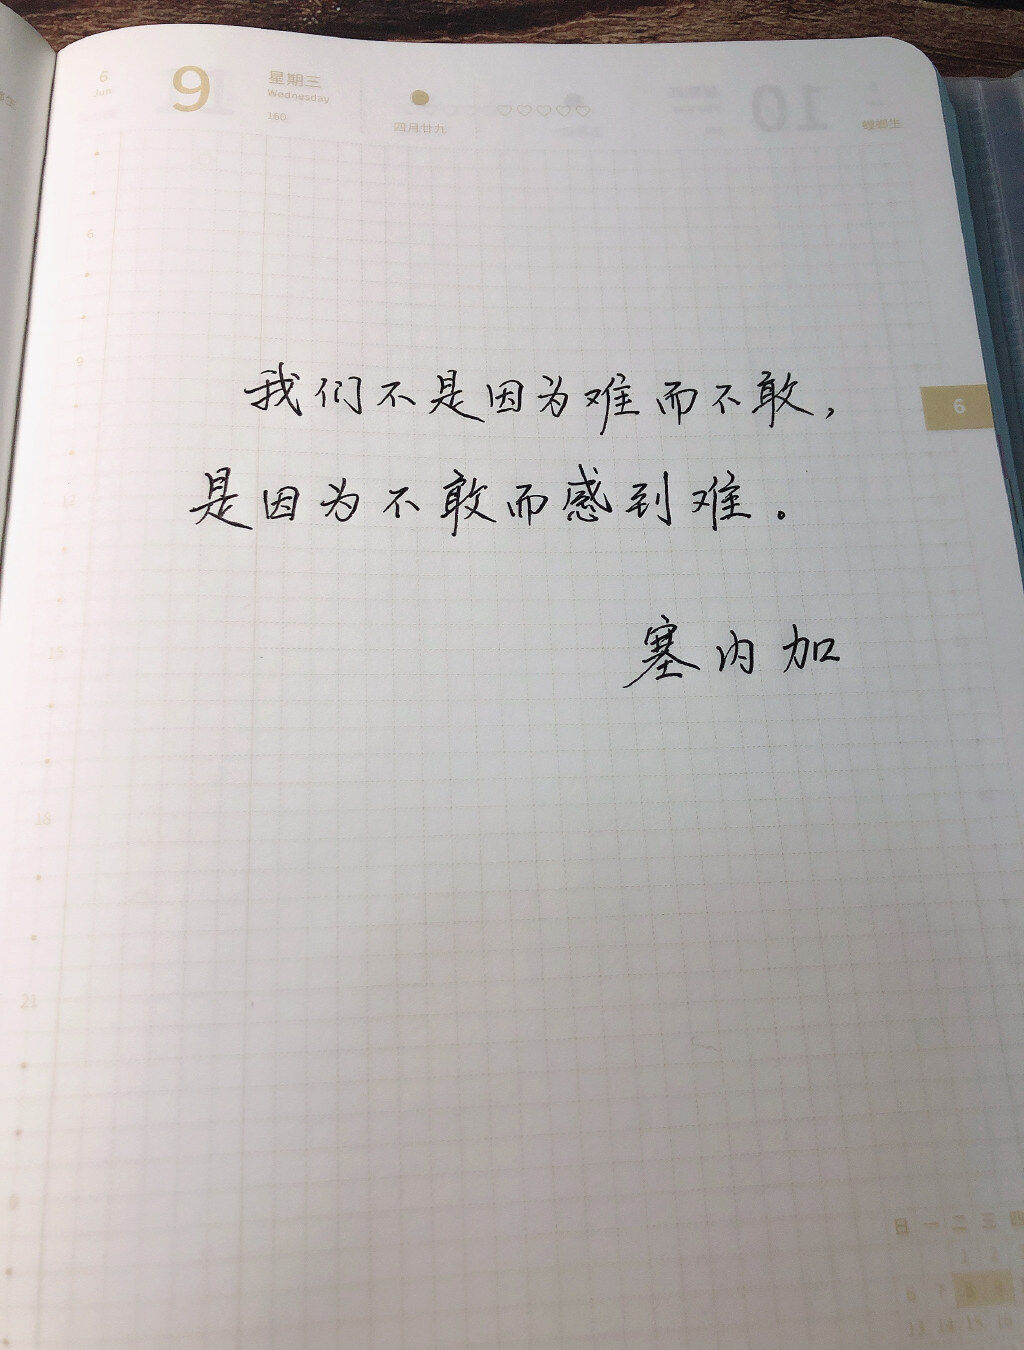 6
Jun
9
星期三
Wednesday
160
四月廿九
螳螂生
6
9
12
15
18
21
0
6
我们不是因为难而不敢，
是因为不敢而感到难。
塞内加
日 一 二 三 四
1 2
6 7 8 9
13 14 15 16